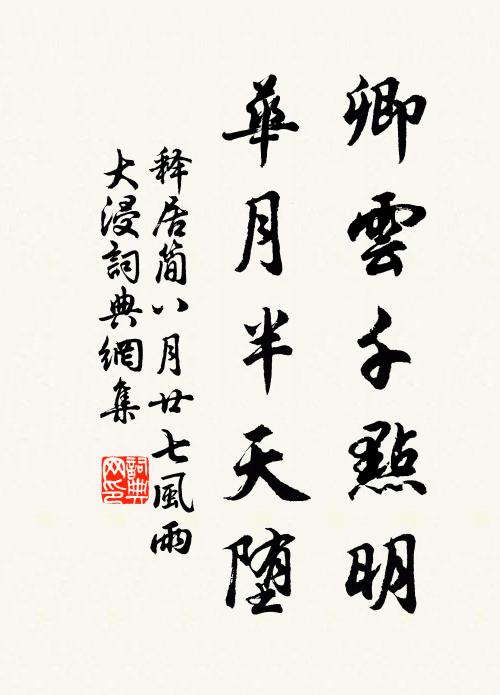 卿雲千點明
華月半天堕
释居簡八月廿七風雨
大浸詞典網集
詞典網印